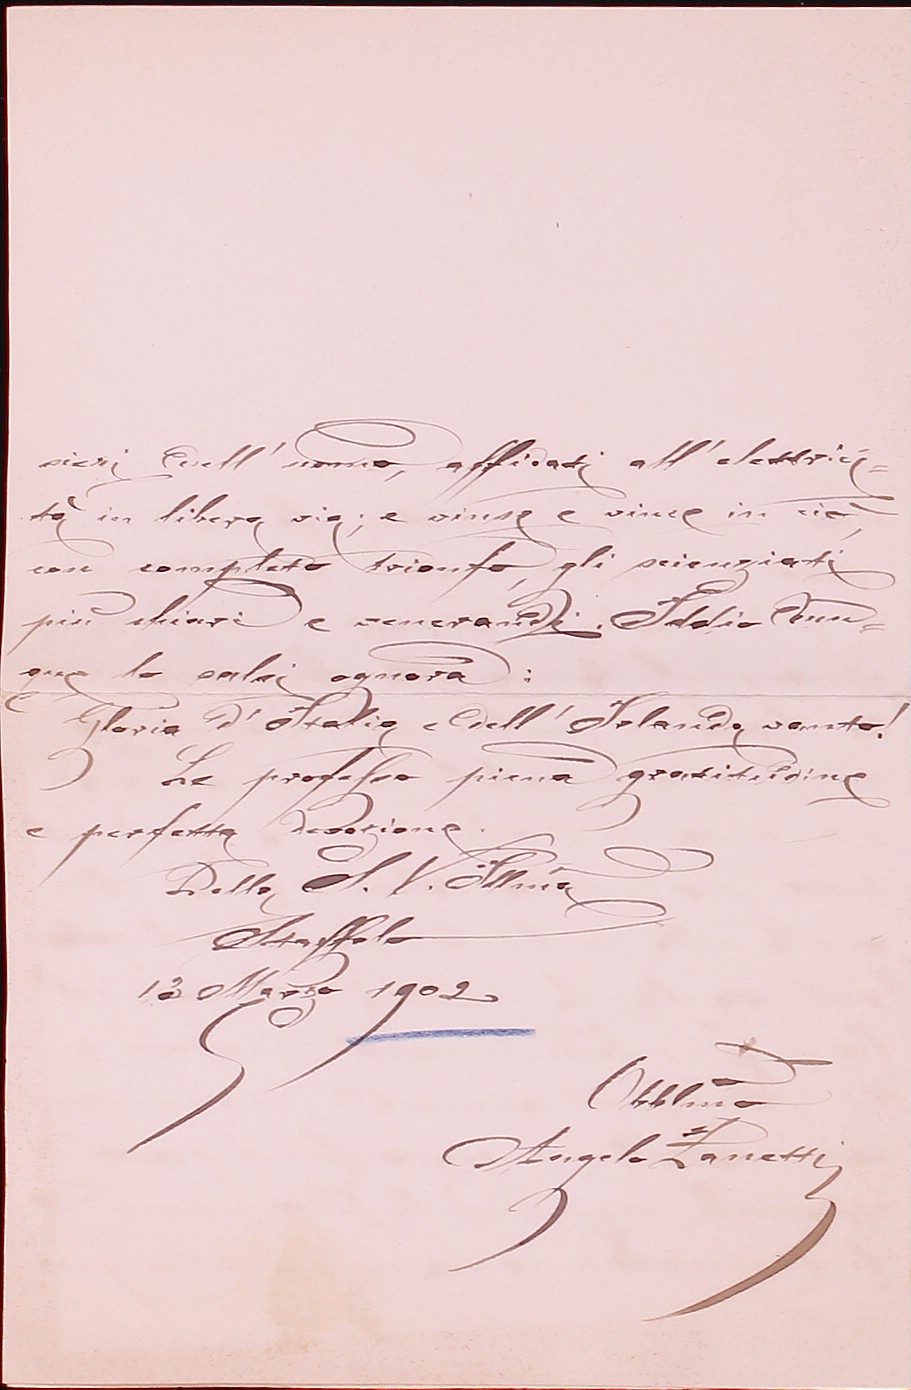 sieri dell'uomo, affidati all'elettrici=
tà in libera via; e vinse e vince in ciò,
con completo trionfo, gli scienziati
più chiari e venerandi. Iddio dun=
que lo salvi ognora:
Gloria d'Italia e dell'Irlanda vanto!
Le professo piena gratitudine
e perfetta devozione.
Della S. V. Illma
Staffolo
13 Marzo 1902
Obblmo
Angelo Zanetti